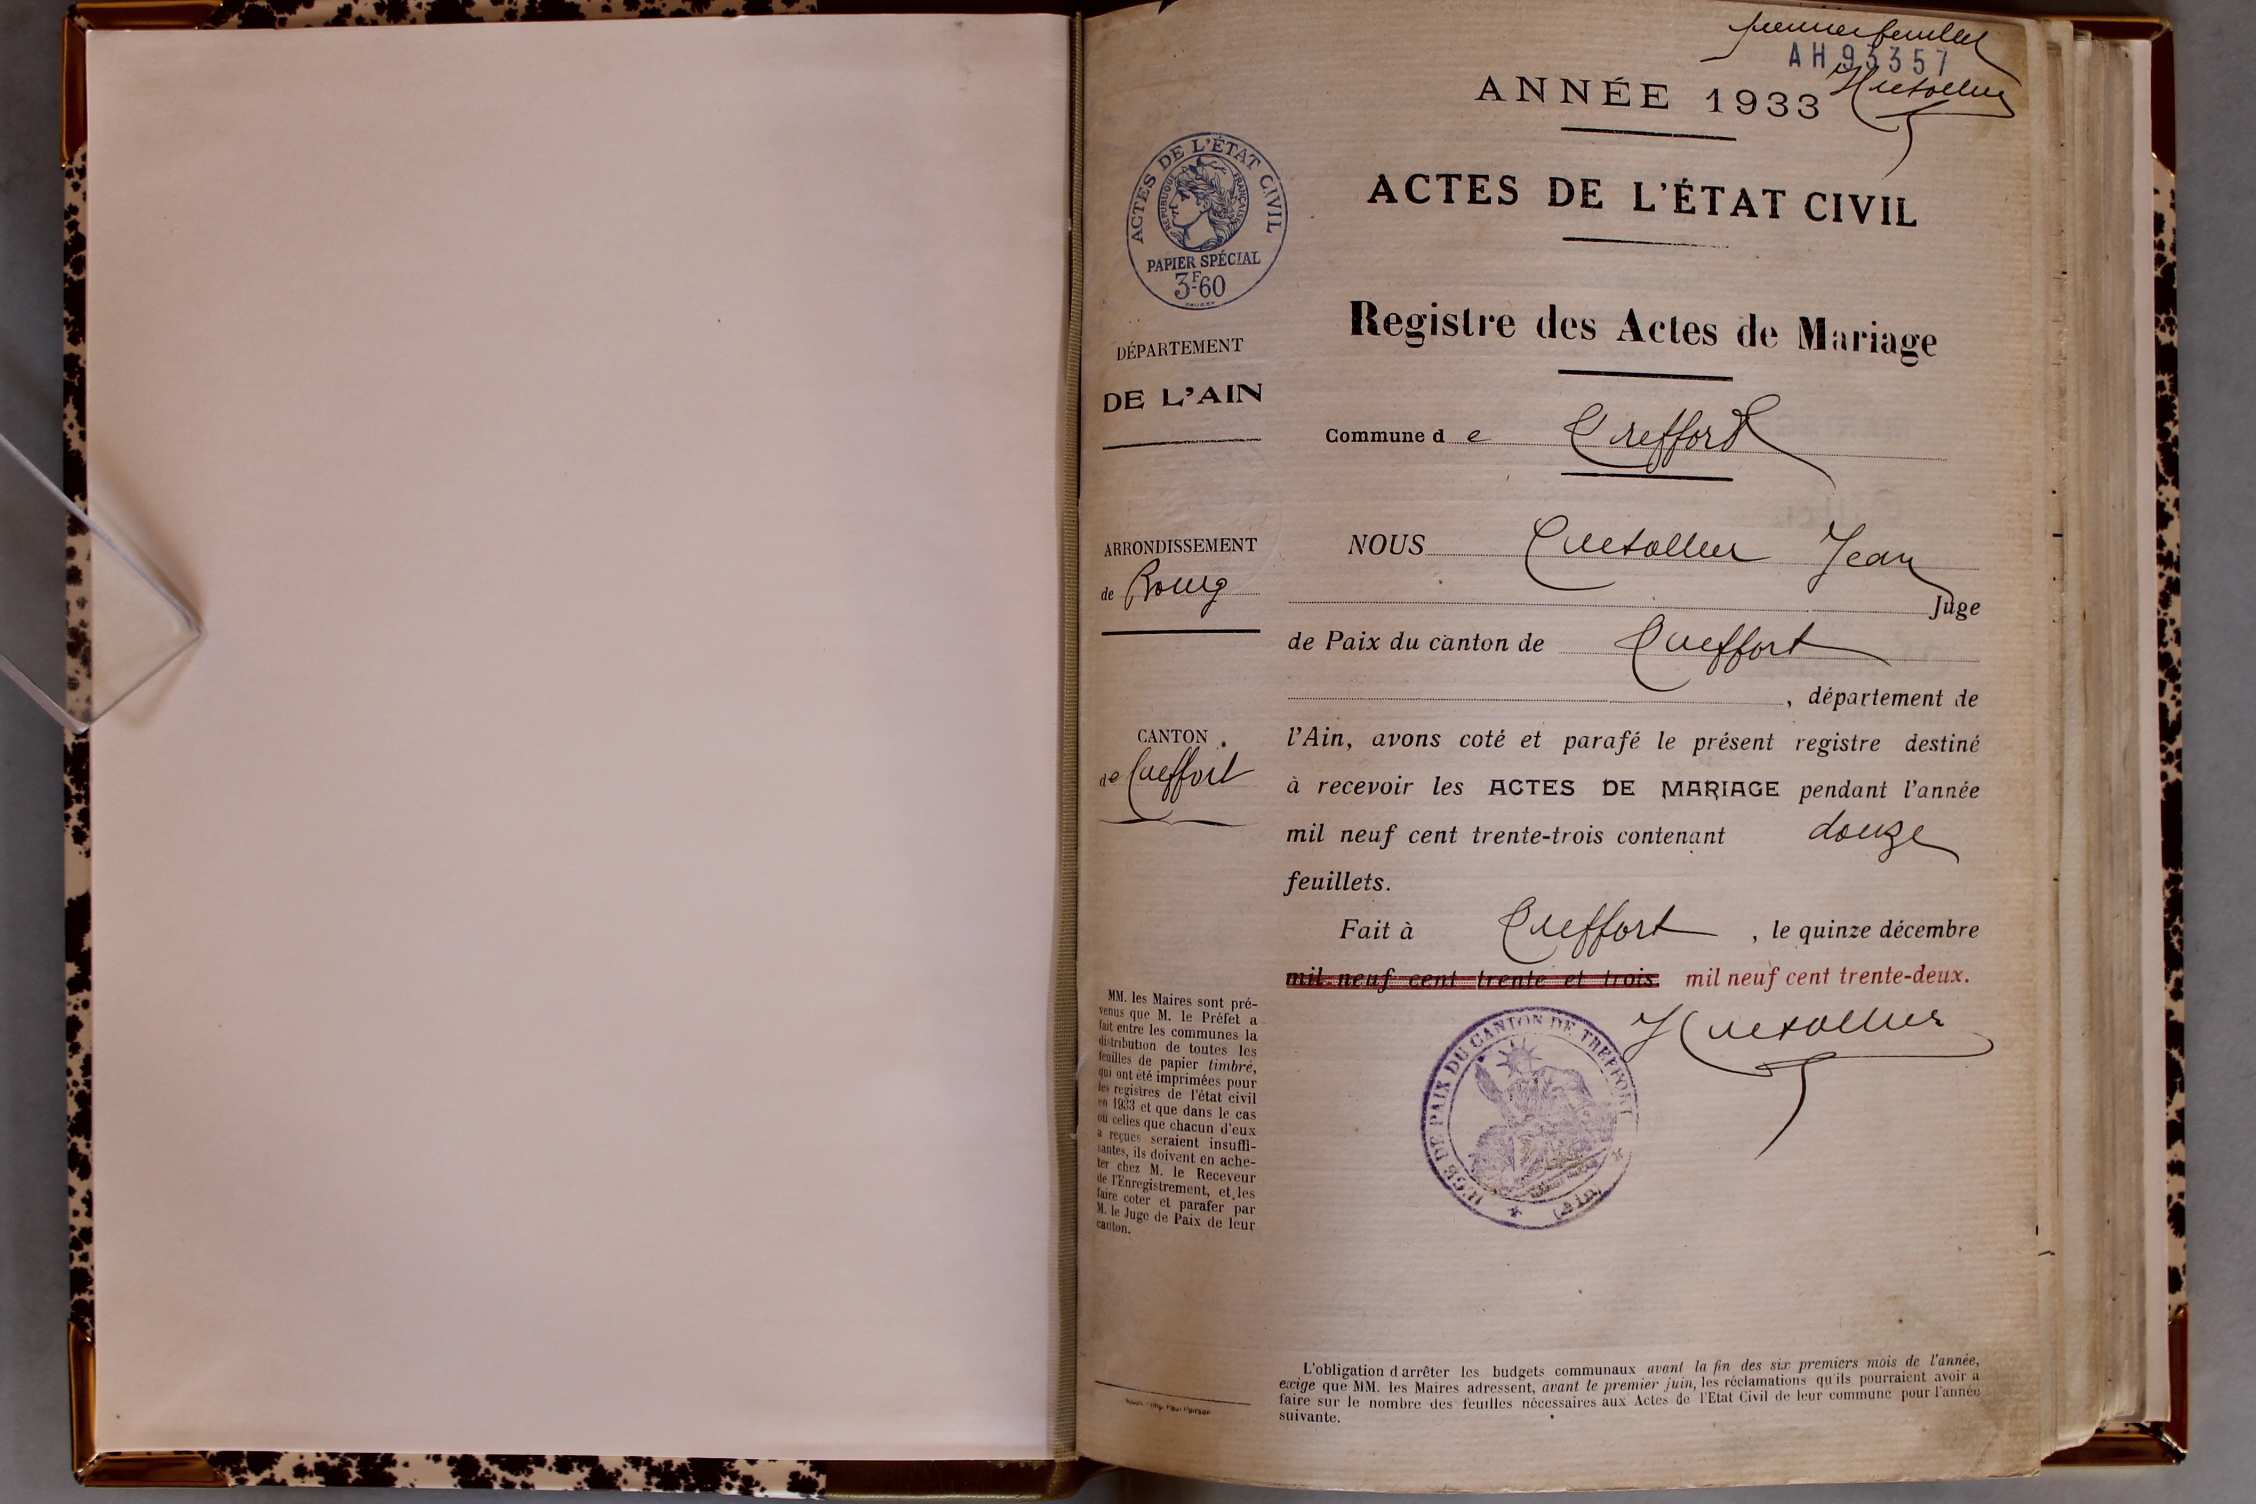 premier feuillet
AH93357
ANNÉE 1933
ACTES DE L'ÉTAT CIVIL
RÉPUBLIQUE FRANÇAISE
PAPIER SPÉCIAL
3F.60
ACTES DE L'ÉTAT CIVIL
Registre des Actes de Mariage
DÉPARTEMENT
DE L'AIN
Commune de Treffort
ARRONDISSEMENT
de Bourg
CANTON
de Treffort
NOUS Jean
Juge
de Paix du canton de Treffort
, département de
l'Ain, avons coté et parafé le présent registre destiné
à recevoir les ACTES DE MARIAGE pendant l'année
mil neuf cent trente-trois contenant douze
feuillets.
Fait à Treffort, le quinze décembre
mil neuf cent trente et trois mil neuf cent trente-deux.
JUGE DE PAIX DU CANTON DE TREFFORT
(Ain)
MM. les Maires sont pré-
venus que M. le Préfet a
fait entre les communes la
distribution de toutes les
feuilles de papier timbré,
qui ont été imprimées pour
les registres de l'état civil
en 1933 et que dans le cas
où celles que chacun d'eux
a reçues seraient insuffi-
santes, ils doivent en ache-
ter chez M. le Receveur
de l'Enregistrement, et les
faire coter et parafer par
M. le Juge de Paix de leur
canton.
L'obligation d'arrêter les budgets communaux avant la fin des six premiers mois de l'année,
exige que MM. les Maires adressent, avant le premier juin, les réclamations qu'ils pourraient avoir à
faire sur le nombre des feuilles nécessaires aux Actes de l'Etat Civil de leur commune pour l'année
suivante.